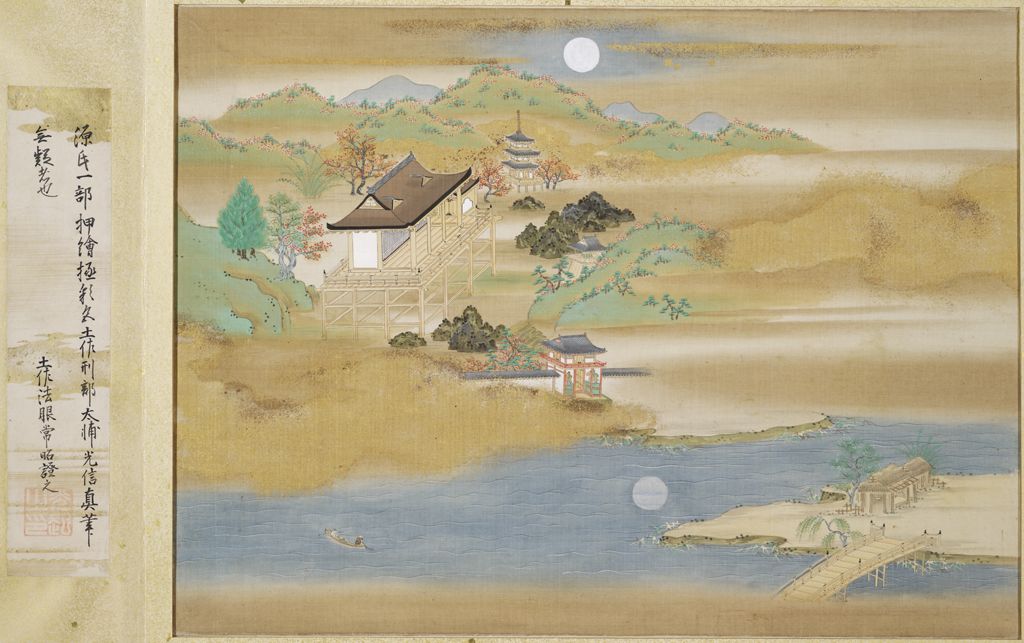 源氏一部押繪極彩色土佐刑部太輔光信真筆
無類者也
土佐法眼常昭證之